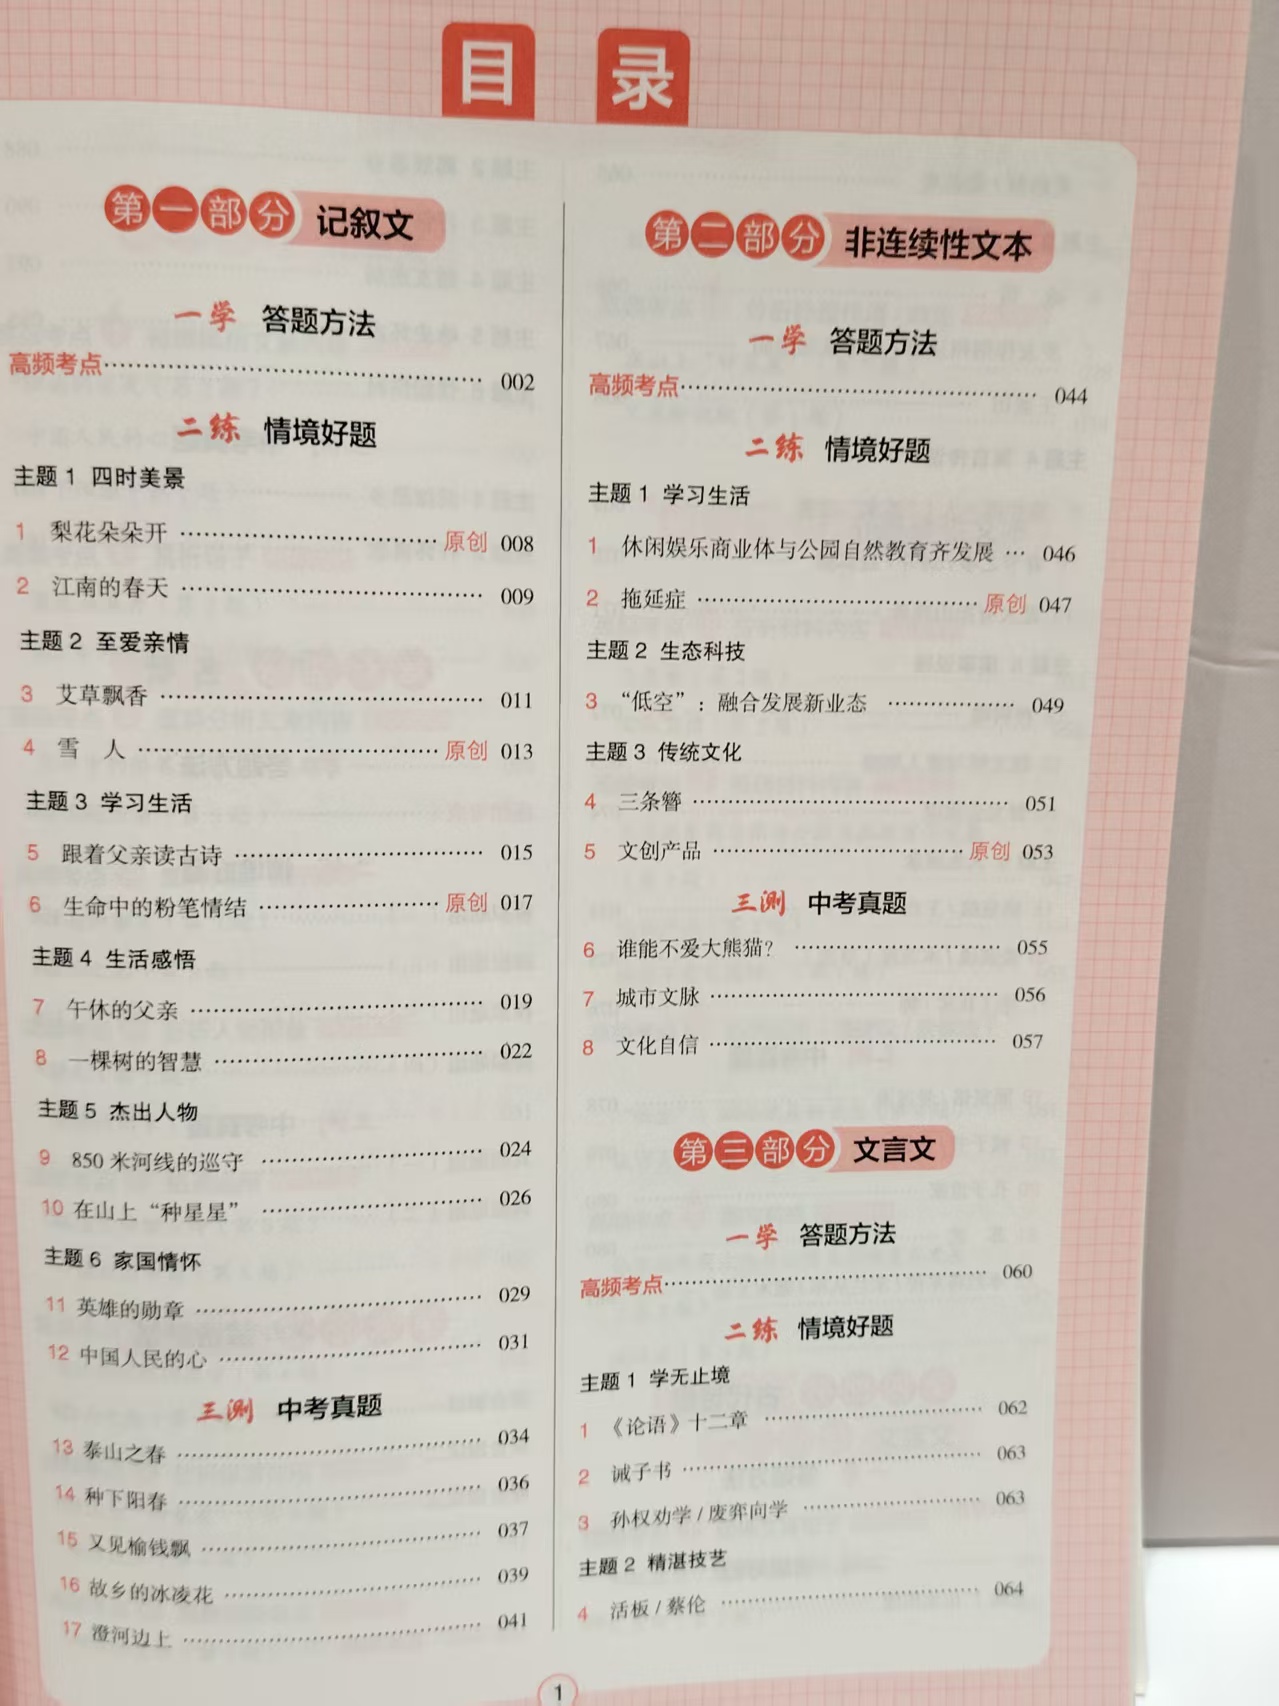 目录
第一部分 记叙文
一学 答题方法
高频考点 002
二练 情境好题
主题1 四时美景
1 梨花朵朵开 原创 008
2 江南的春天 009
主题2 至爱亲情
3 艾草飘香 011
4 雪 人 原创 013
主题3 学习生活
5 跟着父亲读古诗 015
6 生命中的粉笔情结 原创 017
主题4 生活感悟
7 午休的父亲 019
8 一棵树的智慧 022
主题5 杰出人物
9 850米河线的巡守 024
10 在山上“种星星” 026
主题6 家国情怀
11 英雄的勋章 029
12 中国人民的心 031
三测 中考真题
13 泰山之春 034
14 种下阳春 036
15 又见榆钱飘 037
16 故乡的冰凌花 039
17 澄河边上 041
第二部分 非连续性文本
一学 答题方法
高频考点 044
二练 情境好题
主题1 学习生活
1 休闲娱乐商业体与公园自然教育齐发展 … 046
2 拖延症 原创 047
主题2 生态科技
3 “低空”：融合发展新业态 049
主题3 传统文化
4 三条簪 051
5 文创产品 原创 053
三测 中考真题
6 谁能不爱大熊猫? 055
7 城市文脉 056
8 文化自信 057
第三部分 文言文
一学 答题方法
高频考点 060
二练 情境好题
主题1 学无止境
1 《论语》十二章 062
2 诫子书 063
3 孙权劝学/废弃向学 063
主题2 精湛技艺
4 活板/蔡伦 064
1